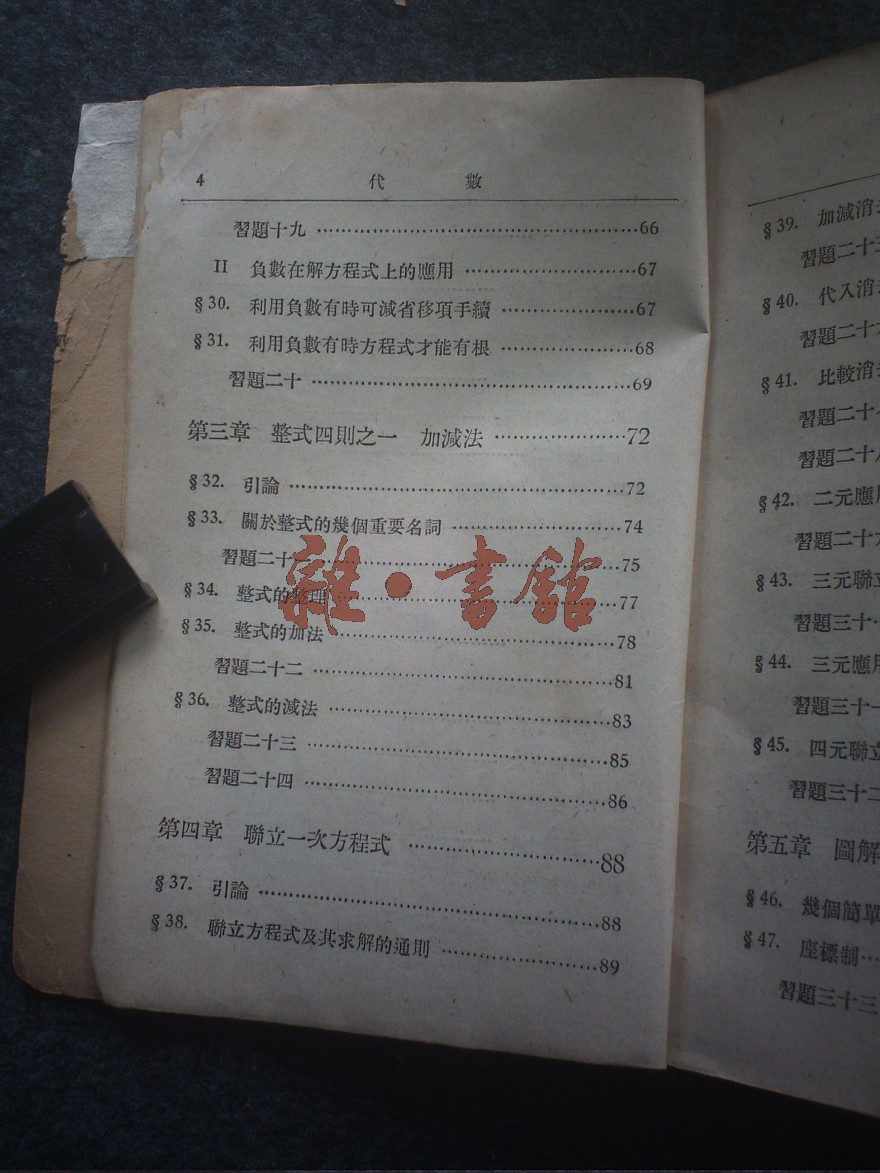 4 代 數
習題十九 ……………………………………………66
II 負數在解方程式上的應用 ………………………67
§30. 利用負數有時可減省移項手續 …………………67
§31. 利用負數有時方程式才能有根 …………………68
習題二十 ……………………………………………69
第三章 整式四則之一 加減法 …………………72
§32. 引論 ………………………………………………72
§33. 關於整式的幾個重要名詞 ………………………74
習題二十一 …………………………………………75
§34. 整式的整理 ………………………………………77
§35. 整式的加法 ………………………………………78
習題二十二 …………………………………………81
§36. 整式的減法 ………………………………………83
習題二十三 …………………………………………85
習題二十四 …………………………………………86
第四章 聯立一次方程式 …………………………88
§37. 引論 ………………………………………………88
§38. 聯立方程式及其求解的通則 ……………………89
雜·書館
§39. 加減消
習題二十
§40. 代入消
習題二十
§41. 比較消
習題二十
習題二十
§42. 二元應
習題二十
§43. 三元聯立
習題三十
§44. 三元應
習題三十
§45. 四元聯立
習題三十二
第五章 圖解
§46. 幾個簡單
§47. 座標制……
習題三十三